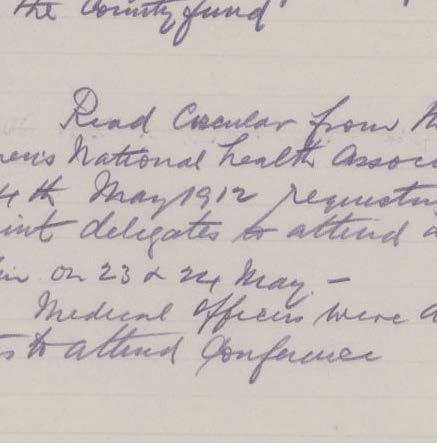 the County fund
Read Circular from th
en's National health Assoc
4th May 1912 requestin
int delegates to attend a
lin on 23 & 24 May. -
Medical Officers were a
ts to attend Conference